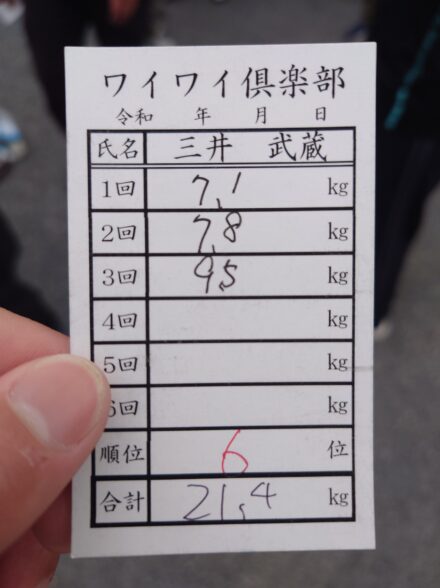 ワイワイ倶楽部
令和 年 月 日
氏名 三井 武蔵
1回 7,1 kg
2回 7,8 kg
3回 9,5 kg
4回 kg
5回 kg
6回 kg
順位 6 位
合計 21,4 kg